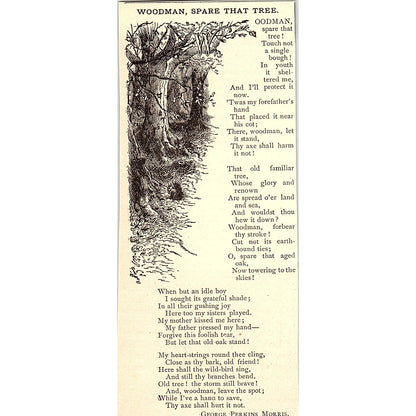 WOODMAN, SPARE THAT TREE.
OODMAN,
spare that
tree!
Touch not
a single
bough!
In youth
it shel-
tered me,
And I'll protect it
now.
'Twas my forefather's
hand
That placed it near
his cot;
There, woodman, let
it stand,
Thy axe shall harm
it not!
That old familiar
tree,
Whose glory and
renown
Are spread o'er land
and sea,
And wouldst thou
hew it down?
Woodman, forbear
thy stroke!
Cut not its earth-
bound ties;
O, spare that aged
oak,
Now towering to the
skies!
When but an idle boy
I sought its grateful shade;
In all their gushing joy
Here too my sisters played.
My mother kissed me here;
My father pressed my hand—
Forgive this foolish tear,
But let that old oak stand!
My heart-strings round thee cling,
Close as thy bark, old friend!
Here shall the wild-bird sing,
And still thy branches bend.
Old tree! the storm still brave!
And, woodman, leave the spot;
While I've a hand to save,
Thy axe shall hurt it not.
GEORGE PERKINS MORRIS.